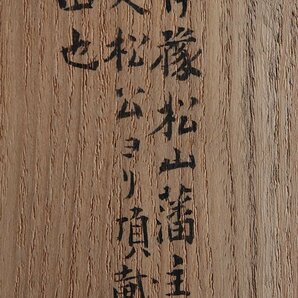 豫松山藩主
松公ヨリ頂戴
也